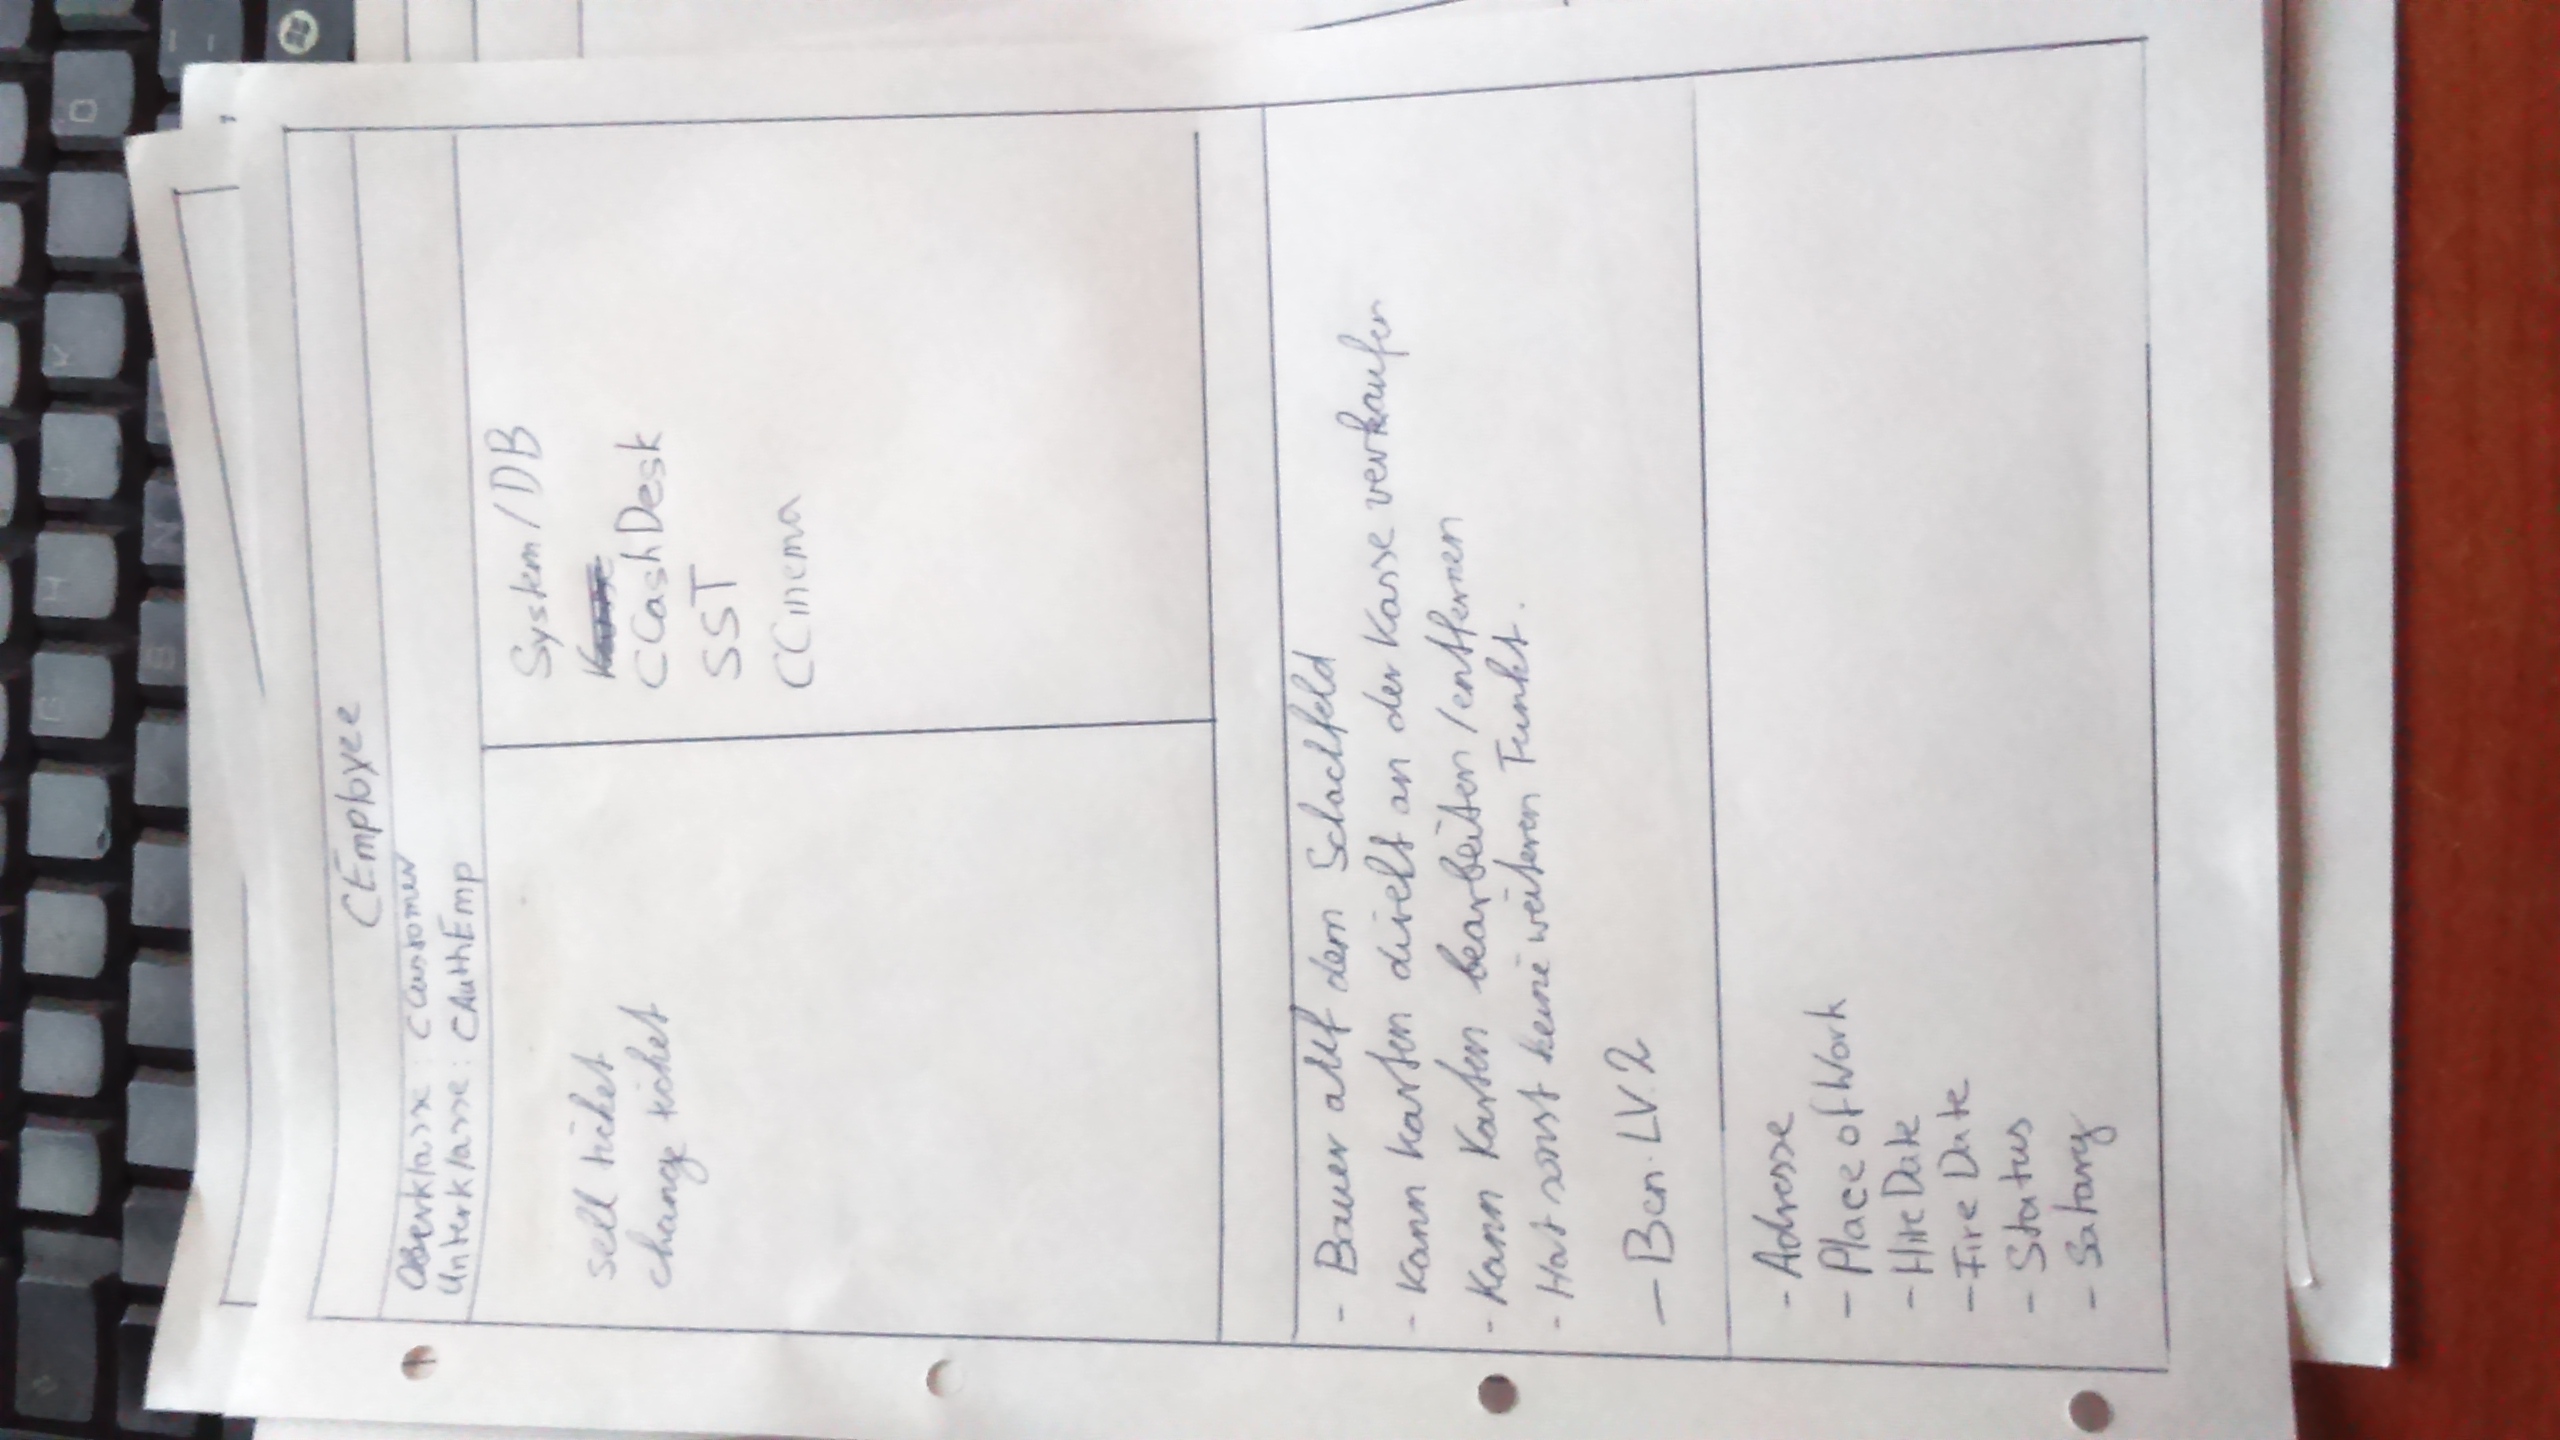 G H J K Ö
B N
CEmployee
Oberklasse: CCustomer
Unterklasse: CAuthEmp
sell ticket
change ticket
System/DB
Kasse
CCashDesk
SST
CCinema
- Bauer auf dem Schachfeld
- Kann Karten direkt an der Kasse verkaufen
- Kann Karten bearbeiten/entfernen
- Hat sonst keine weiteren Funkt.
- Ben. LV. 2
- Adresse
- Place of Work
- Hire Date
- Fire Date
- Status
- Salary